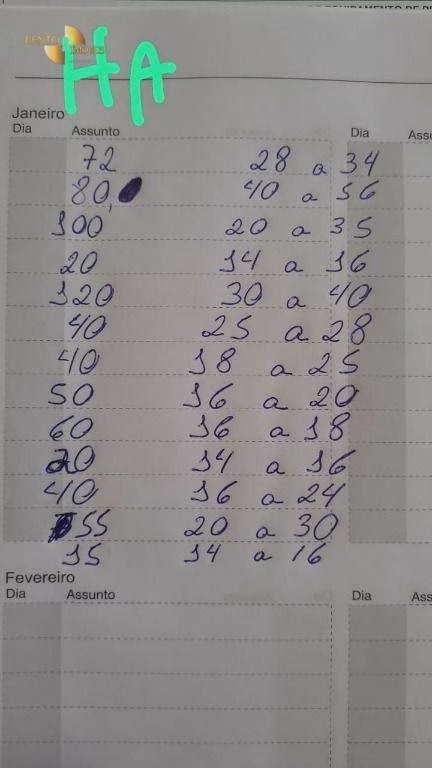 HA
Janeiro
Dia Assunto Dia
72 28 a 34
80, 40 a 56
100 20 a 35
20 14 a 16
120 30 a 40
40 25 a 28
40 18 a 25
50 16 a 20
60 16 a 18
20 14 a 16
40 16 a 24
55 20 a 30
15 14 a 16
Fevereiro
Dia Assunto Dia